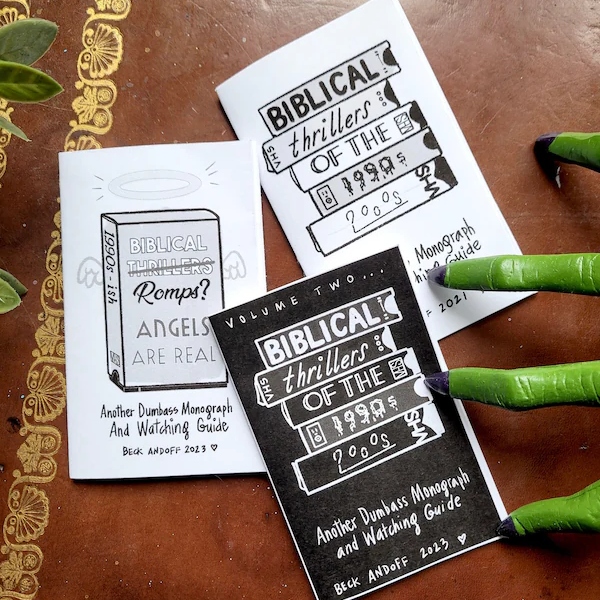 1990s-ish
BIBLICAL
THRILLERS
Romps?
ANGELS
ARE REAL
Another Dumbass Monograph
And Watching Guide
BECK ANDOFF 2023 ♡
BIBLICAL
thrillers
VHS
OF THE
1990s
VHS
2000s
Monograph
Guide
2021 ♡
VOLUME TWO...
BIBLICAL
thrillers
VHS
OF THE
1990s
VHS
2000s
Another Dumbass Monograph
and Watching Guide
BECK ANDOFF 2023 ♡